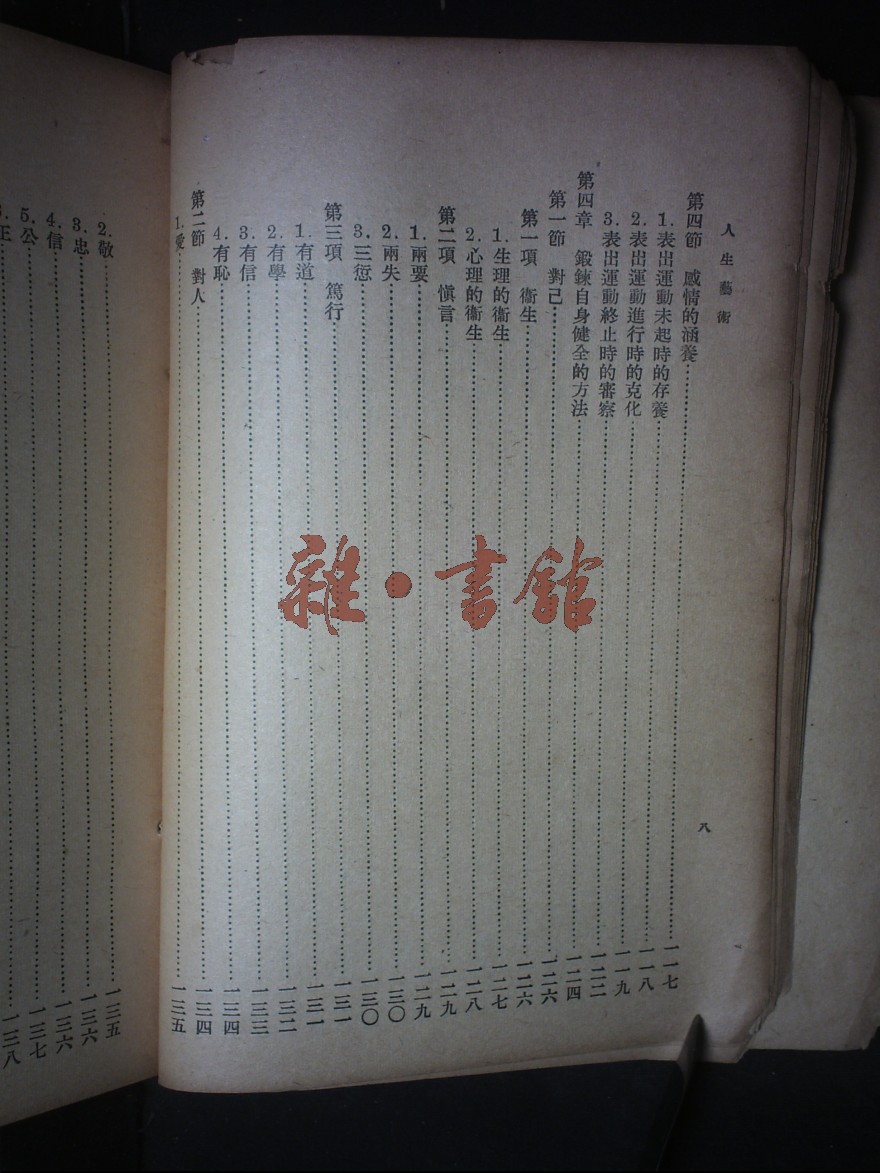 人生藝術
八
第四節　感情的涵養……一一七
1. 表出運動未起時的存養……一一八
2. 表出運動進行時的克化……一一九
3. 表出運動終止時的審察……一二二
第四章　鍛鍊自身健全的方法……一二四
第一節　對己……一二六
第一項　衞生……一二六
1. 生理的衞生……一二七
2. 心理的衞生……一二八
第二項　愼言……一二九
1. 兩要……一二九
2. 兩失……一三〇
3. 三愆……一三〇
第三項　篤行……一三一
1. 有道……一三一
2. 有學……一三二
3. 有信……一三三
4. 有恥……一三四
第二節　對人……一三四
1. 愛……一三五
2. 敬……一三五
3. 忠……一三六
4. 信……一三六
5. 公……一三七
正……一三八
雜·書館